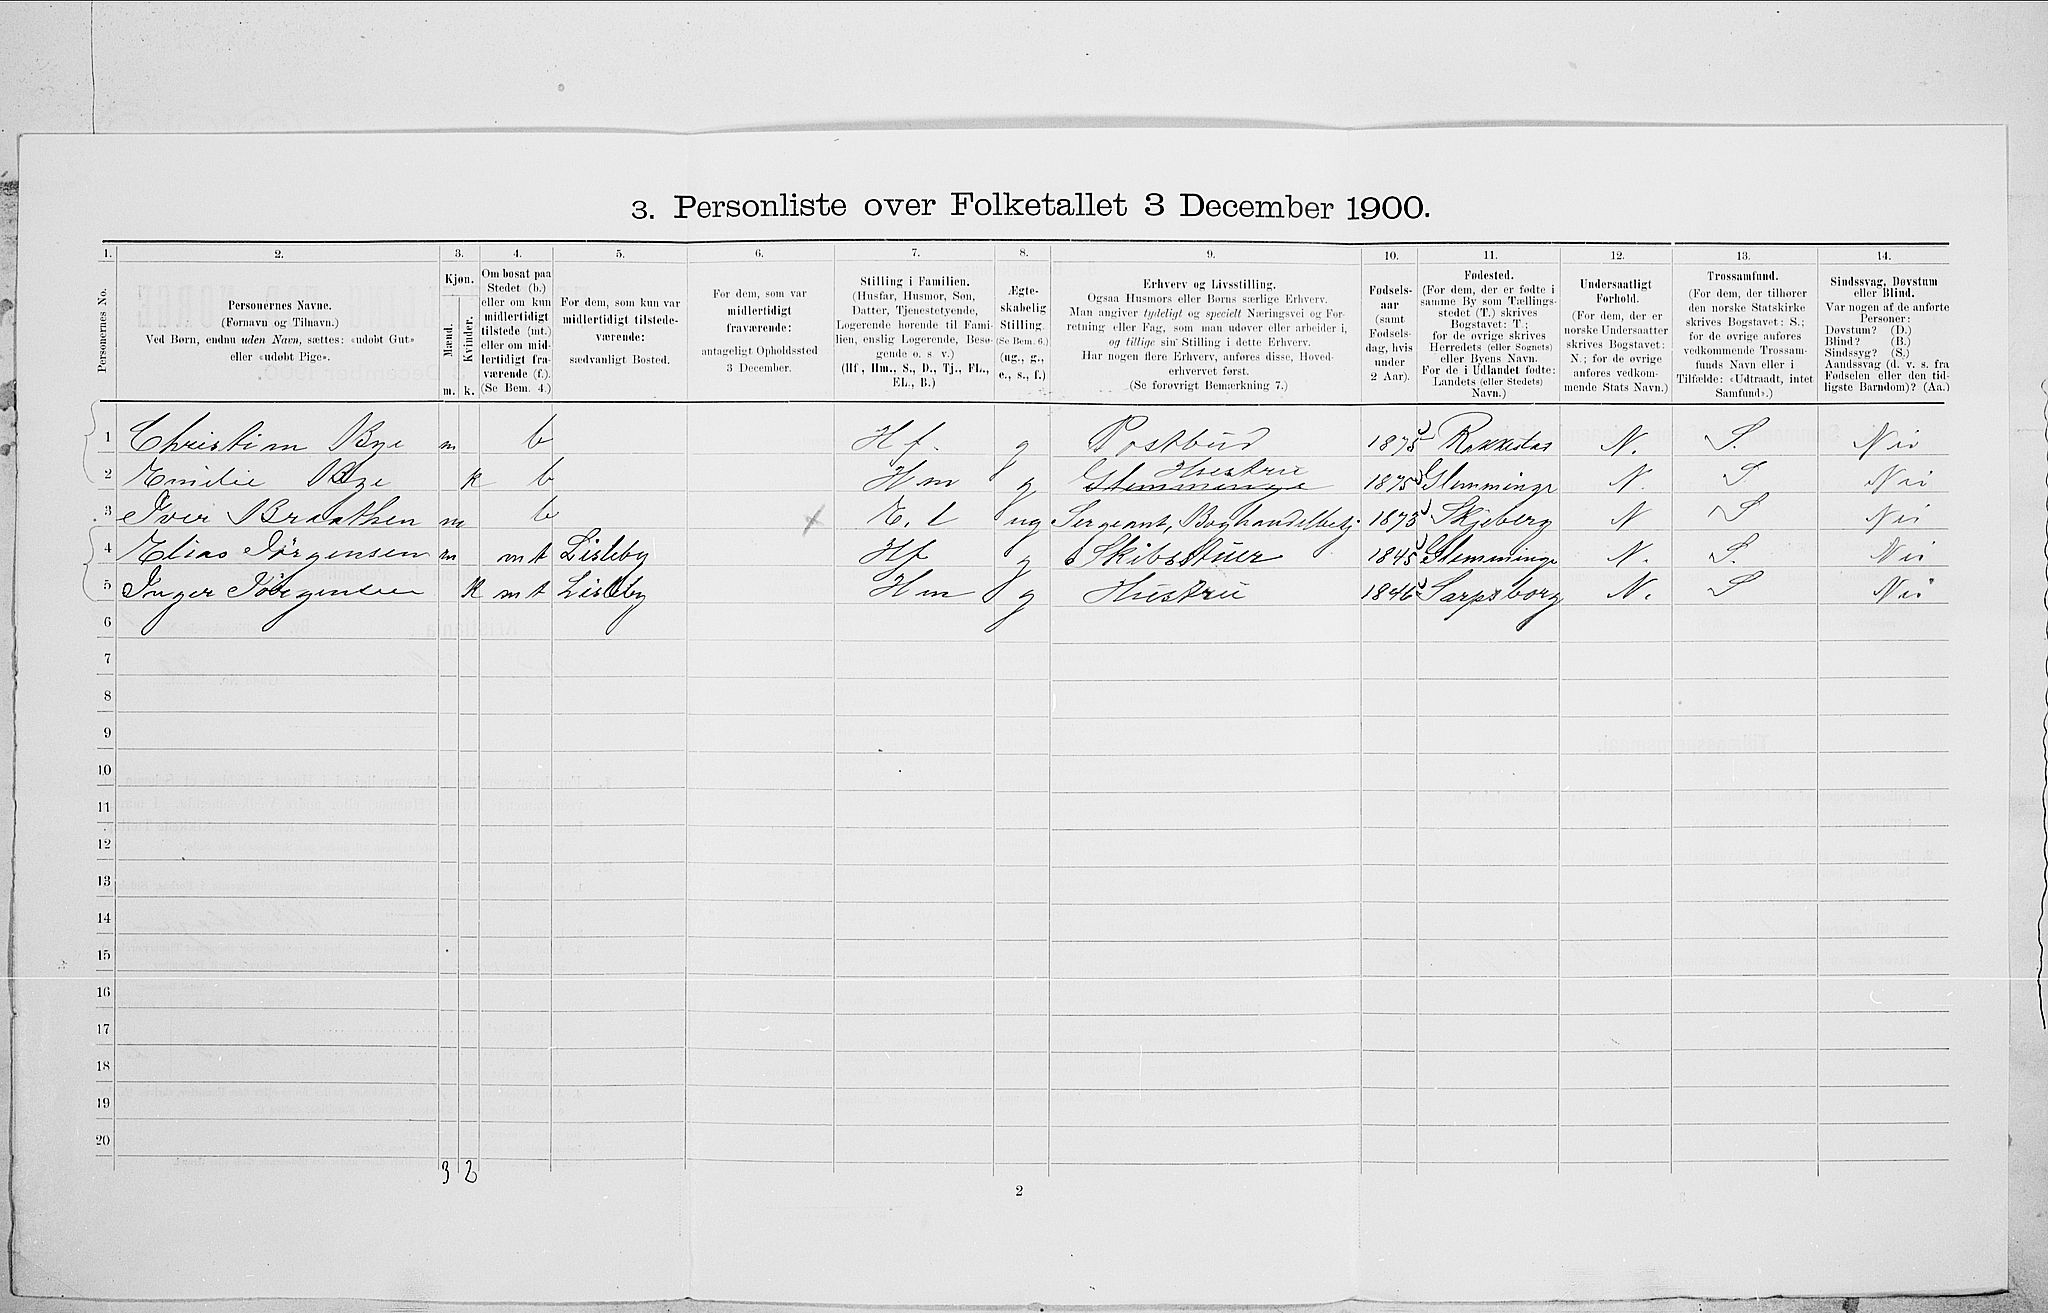 3. Personliste over Folketallet 3 December 1900.
1. 2. 3. 4. 5. 6. 7. 8. 9. 10. 11. 12. 13. 14.
Personernes No.
Personernes Navne.
(Fornavn og Tilnavn.)
Ved Børn, endnu uden Navn, sættes: «udøbt Gut»
eller «udøbt Pige».
Kjøn.
Mænd. Kvinder.
m. k.
Om bosat paa
Stedet (b.)
eller om kun
midlertidigt
tilstede (mt.)
eller om mid-
lertidigt fra-
værende (f.).
(Se Bem. 4.)
For dem, som kun var
midlertidigt tilstede-
værende:
sædvanligt Bosted.
For dem, som var
midlertidigt
fraværende:
antageligt Opholdssted
3 December.
Stilling i Familien.
(Husfar, Husmor, Søn,
Datter, Tjenestetyende,
Logerende hørende til Fami-
lien, enslig Logerende, Besø-
gende o. s. v.)
(Hf., Hm., S., D., Tj., FL.,
EL., B.)
Ægte-
skabelig
Stilling.
(Se Bem. 6.)
(ug., g.,
e., s., f.)
Erhverv og Livsstilling.
Ogsaa Husmors eller Børns særlige Erhverv.
Man angiver tydeligt og specielt Næringsvei og For-
retning eller Fag, som man udøver eller arbeider i,
og tillige sin Stilling i dette Erhverv.
Har nogen flere Erhverv, anføres disse, Hoved-
erhvervet først.
(Se forøvrigt Bemærkning 7.)
Fødsels-
aar
(samt
Fødsels-
dag, hvis
under
2 Aar).
Fødested.
(For dem, der er fødte i
samme By som Tællings-
stedet (T.) skrives
Bogstavet: T.;
for de øvrige skrives
Herredets (eller Sognets)
eller Byens Navn.
For de i Udlandet fødte:
Landets (eller Stedets)
Navn.)
Undersaatligt
Forhold.
(For dem, der er
norske Undersaatter
skrives Bogstavet:
N.; for de øvrige
anføres vedkom-
mende Stats Navn.)
Trossamfund.
(For dem, der tilhører
den norske Statskirke
skrives Bogstavet: S.;
for de øvrige anføres
vedkommende Trossam-
funds Navn eller i
Tilfælde: «Udtraadt, intet
Samfund».)
Sindssvag, Døvstum
eller Blind.
Var nogen af de anførte
Personer:
Døvstum? (D.)
Blind? (B.)
Sindssyg? (S.)
Aandssvag (d. v. s. fra
Fødselen eller den tid-
ligste Barndom)? (Aa.)
1 Christian Bye m b Hf. g Postbud 1875 Rakkestad N. S. Nei
2 Emilie Bye k b Hm g Glemminge Hustru 1875 Glemminge N. S Nei
3 Iver Braathen m b E. l ug Sergeant, Boghandelbetj 1873 Skjeberg N S Nei
4 Elias Jørgensen m mt Lisleby Hf g Skibsstuer 1845 Glemminge N. S. Nei
5 Inger Jørgensen k mt Lisleby Hm g Hustru 1846 Sarpsborg N. S Nei
6
7
8
9
10
11
12
13
14
15
16
17
18
19
20
3 2
2